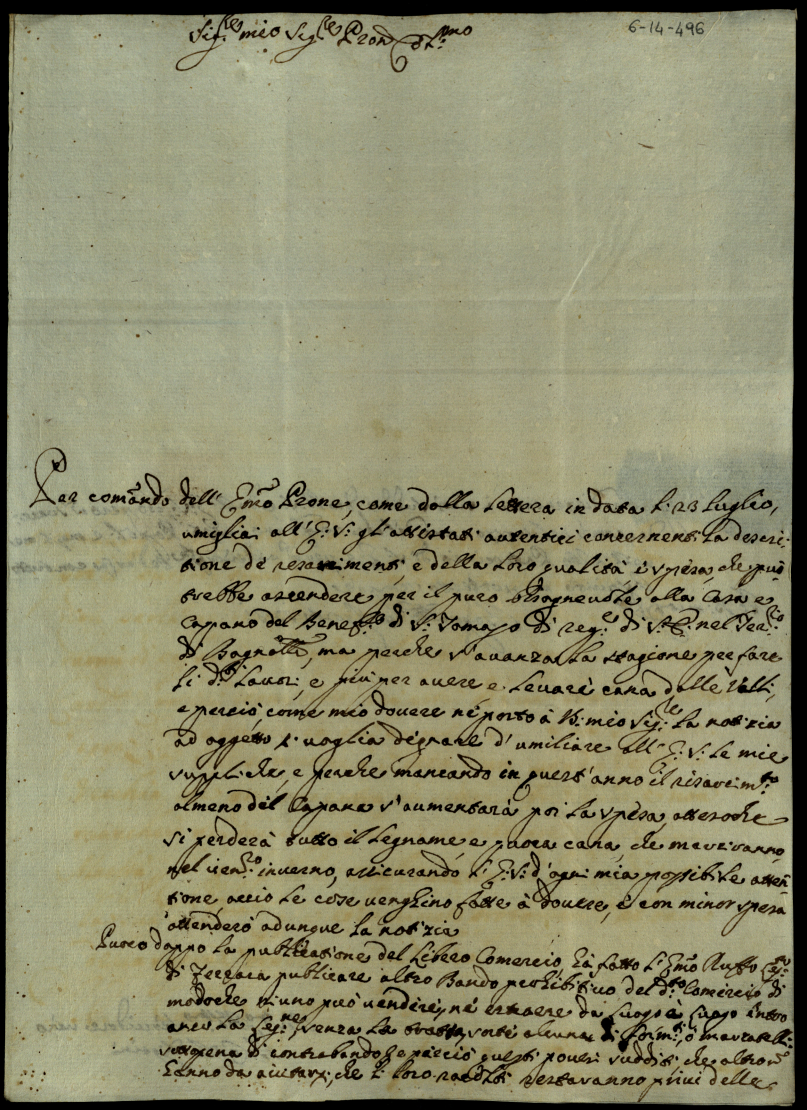 6-14-496
Sig.re mio Sig.re Pron
Per comando dell' Emo Prone, come dalla lettera in data li 23 luglio,
umigliai all' E: V: gl'attestati autentici concernenti la descri-
tione de' resarcimenti, e della loro qualità, e spesa, che puo-
trebbe ascendere per il puro bisognevole alla Casa e
Capano del Beneff.o di S: Tomaso di reg.e di nel Ter.rio
di, ma perche s'avanza la stagione per fare
li d.ti Lavori, e più per avere e levare cana dalle Valli,
e perciò, come mio dovere né porto à mio Sig.re la notizia
ad oggetto voglia degnare d'umiliare all' E: V: le mie
suppliche, e perche mancando in quest'anno il risarcim.to
almeno del Capano s'aumentarà poi la spesa, atteso che
si perderà tutto il legname, e puoca cana, che
nel inverno, assicurando l'E: V: d'ogni mia possibile atten-
tione, accio le cose venghino fatte à dovere, e con minor spesa
attenderò adunque la notizia
Puoco doppo la publicatione del Libero Comercio hà fatto l'Emo Ruffo
di Ferrara publicare altro Bando prohibitivo del d.to Comercio di
modo che niuno può vendere, né estraere da Luogo à Luogo entro
anco la, senza la tratta, sorte alcuna di, ò
sotto pena di contrabando, e perciò questi poveri sudditi che altro non
hanno da aiutarsi, che li loro racolti restaranno privi delle